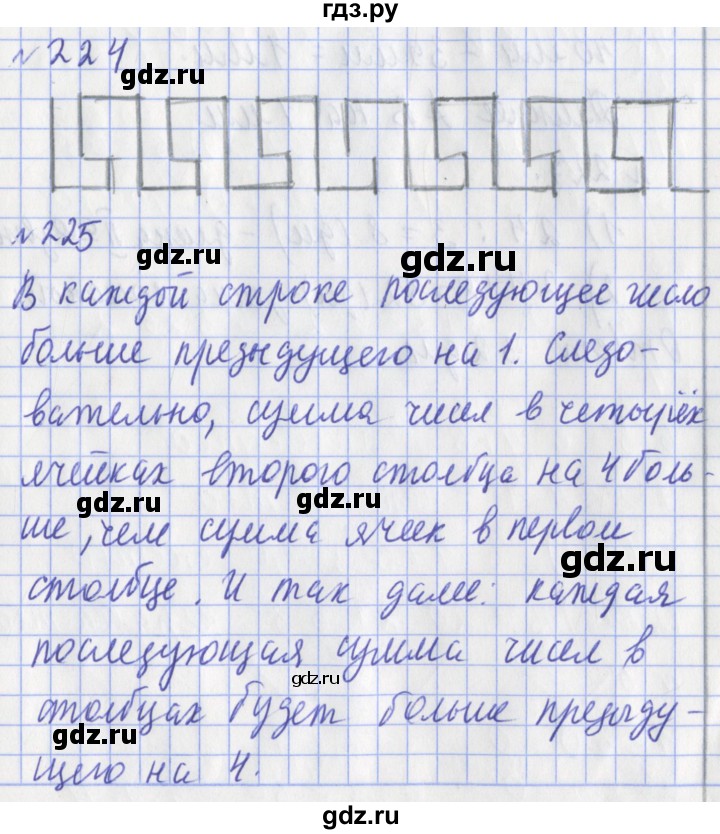 гдз.ру
№ 224
gdz.ru
gdz.ru
gdz.ru
gdz.ru
№ 225
gdz.ru
gdz.ru
В каждой строке последующее число
больше предыдущего на 1. Следо-
вательно, сумма чисел в четырёх
ячейках второго столбца на 4 боль-
gdz.ru
gdz.ru
ше, чем сумма ячеек в первом
gdz.ru
столбце. И так далее: каждая
последующая сумма чисел в
gdz.ru
столбцах будет больше предыду-
gdz.ru
gdz.ru
щего на 4.
gdz.ru